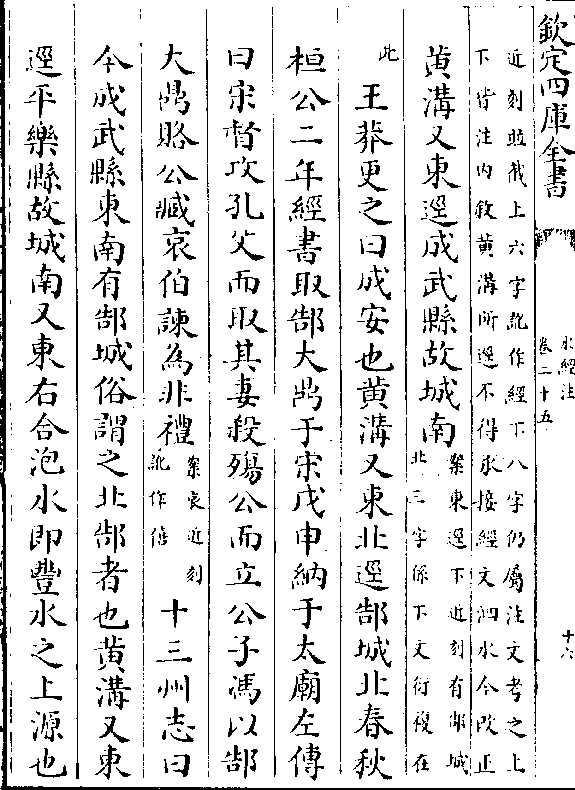 欽定四庫全書
水經注
卷二十五
十六
近刻竝截上六字訛作經下八字仍屬注文考之上
下皆注内敘黄溝所逕不得承接經文泗水今改正
黄溝又東逕成武縣故城南
案東逕下近刻有郜城
北三字係下文衍複在
此
王莽更之曰成安也黄溝又東北逕郜城北春秋
桓公二年經書取郜大鼎于宋戊申納于太廟左傳
曰宋督攻孔父而取其妻殺殤公而立公子馮以郜
大鼎賂公臧哀伯諫為非禮
案哀近刻
訛作僖
十三州志曰
今成武縣東南有郜城俗謂之北郜者也黄溝又東
逕平樂縣故城南又東右合泡水即豐水之上源也